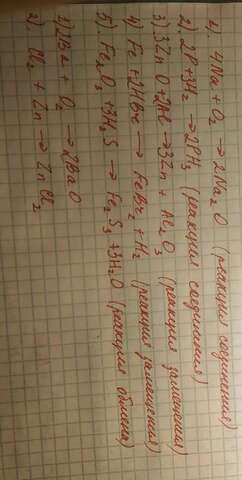 1. 4Na + O₂ → 2Na₂O (реакция соединения)
2) 2P + 3H₂ → 2PH₃ (реакция соединения)
3) 3ZnO + 2Al → 3Zn + Al₂O₃ (реакция замещения)
4) Fe + 3HBr → FeBr₂ + H₂ (реакция замещения)
5) Fe₂O₃ + 3H₂S → Fe₂S₃ + 3H₂O (реакция обмена)
1) 2Ba + O₂ → 2BaO
2) Cl₂ + Zn → ZnCl₂